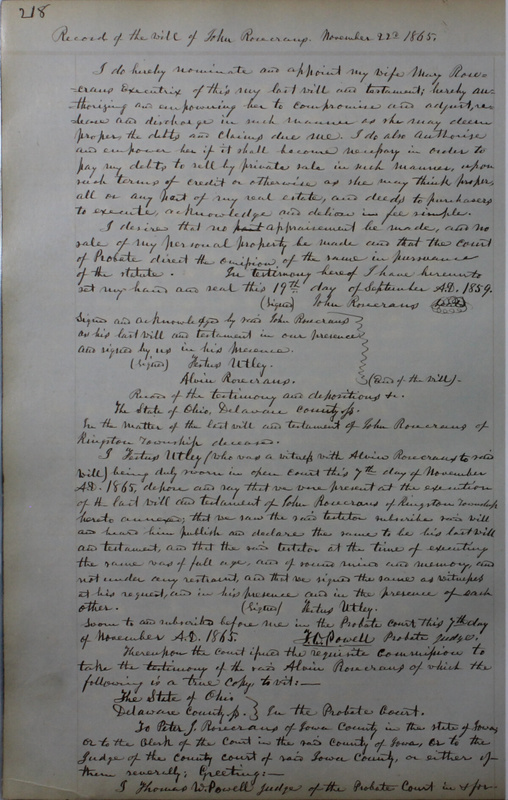 218
Record of the Will of John Rosecrans. November 22d 1865.
I do hereby nominate and appoint my wife Mary Rose=
=crans Executrix of this my last will and testament; hereby au=
=thorizing and empowering her to compromise and adjust, re=
lease and discharge in such manner as she may deem
proper the debts and claims due me. I do also authorise
and empower her if it shall become necessary in order to
pay my debts to sell by private sale in such manner, upon
such terms of credit or otherwise as she may think proper,
all or any part of my real estate, and deeds to purchasers
to execute, acknowledge and deliver in fee simple.
I desire that no appraisement be made, and no
sale of my personal property be made and that the court
of Probate direct the omission of the same in pursuance
of the statute. In testimony hereof I have hereunto
set my hand and seal this 19th day of September A.D. 1859.
(Signed) John Rosecrans Seal
Signed and acknowledged by said John Rosecrans
as his last will and testament in our presence
and signed by us in his presence.
(Signed) Festus Utley.
Alvin Rosecrans. (End of the Will).
Record of the testimony and depositions &c.
The State of Ohio, Delaware County ss.
In the matter of the last will and testament of John Rosecrans of
Kingston Township deceased.
I Festus Utley (who was a witness with Alvin Rosecrans to said
will) being duly sworn in open Court this 7th day of November
A.D. 1865, depose and say that we were present at the execution
of the last will and testament of John Rosecrans of Kingston Township
hereto annexed; that we saw the said testator subscribe said will
and heard him publish and declare the same to be his last will
and testament, and that the said testator at the time of executing
the same was of full age, and of sound mind and memory, and
not under any restraint, and that we signed the same as witnesses
at his request, and in his presence and in the presence of each
other. (Signed) Festus Utley.
Sworn to and subscribed before me in the Probate Court this 7th day
of November A.D. 1865. Powell Probate Judge.
Thereupon the Court issued the requisite commission to
take the testimony of the said Alvin Rosecrans of which the
following is a true copy to wit:—
The State of Ohio
Delaware County ss. } In the Probate Court.
To Peter S. Rosecrans of Iowa County in the state of Iowa,
or to the Clerk of the Court in the said County of Iowa, or to the
Judge of the County Court of said Iowa County, or either of
them severally; Greeting:—
I Thomas W. Powell Judge of the Probate Court in & for